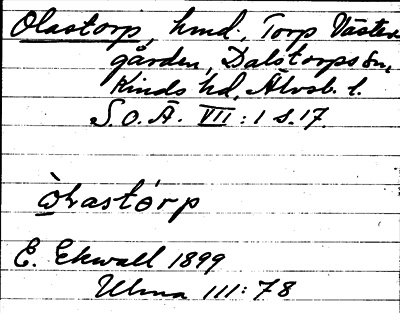 Olastorp, hmd. Torp Väster-
gården, Dalstorps sn,
Kinds hd, Älvsb. l.
S.O.Ä. VII:1 s.17.
òlastórp
E. Ekwall 1899
Ulma 111:78